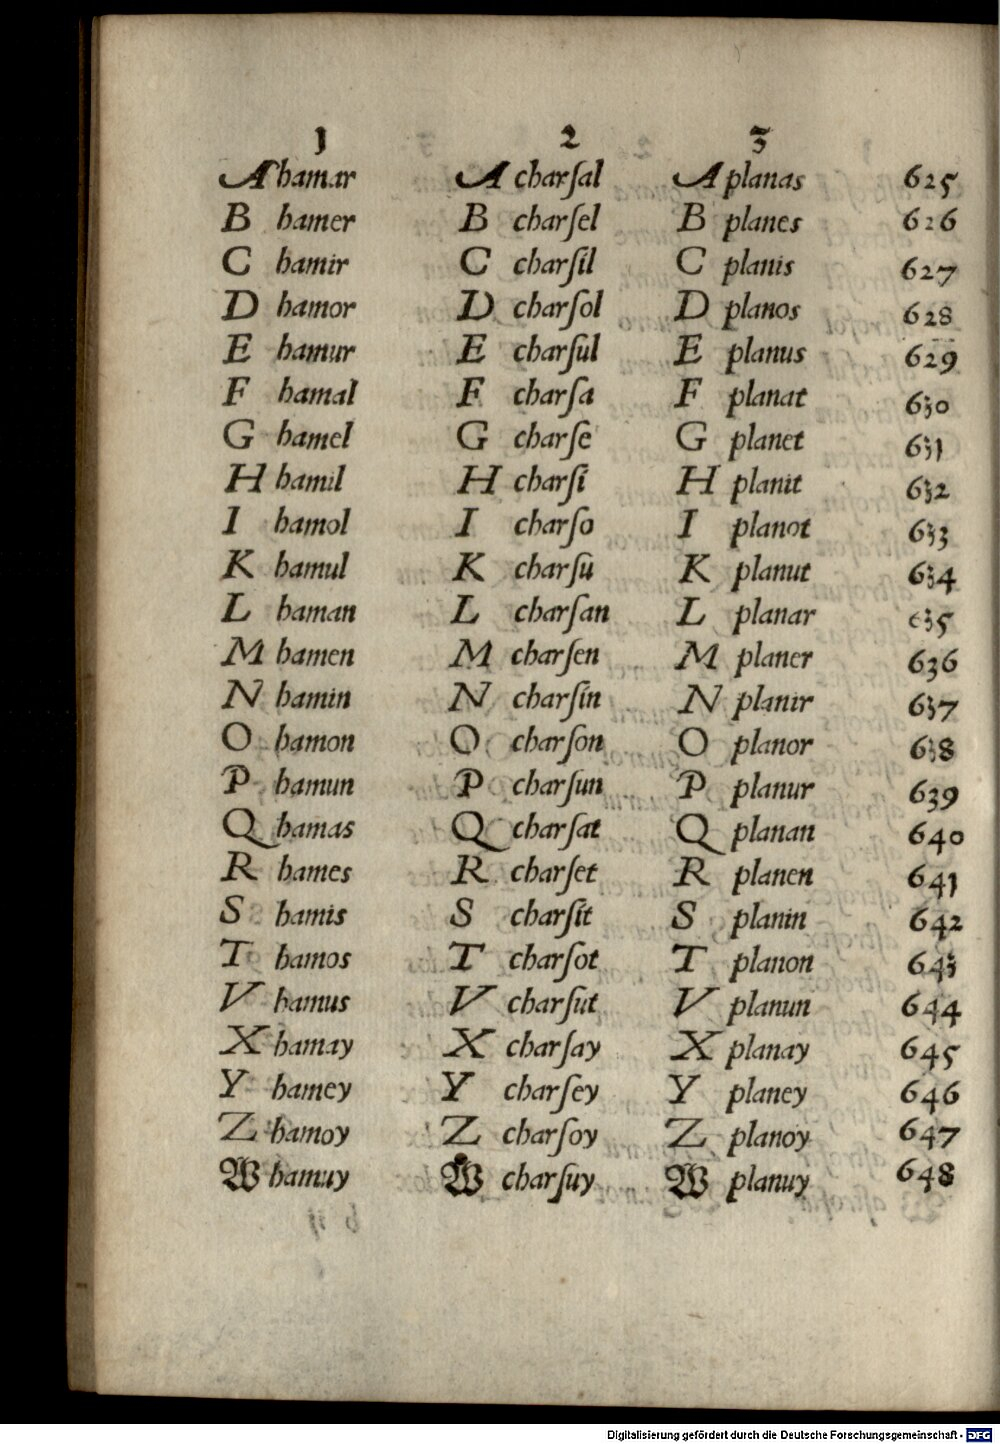 1 2 3
A hamar A charſal A planas 625
B hamer B charſel B planes 626
C hamir C charſil C planis 627
D hamor D charſol D planos 628
E hamur E charſul E planus 629
F hamal F charſa F planat 630
G hamel G charſe G planet 631
H hamil H charſi H planit 632
I hamol I charſo I planot 633
K hamul K charſu K planut 634
L haman L charſan L planar 635
M hamen M charſen M planer 636
N hamin N charſin N planir 637
O hamon O charſon O planor 638
P hamun P charſun P planur 639
Q hamas Q charſat Q planan 640
R hames R charſet R planen 641
S hamis S charſit S planin 642
T hamos T charſot T planon 643
V hamus V charſut V planun 644
X hamay X charſay X planay 645
Y hamey Y charſey Y planey 646
Z hamoy Z charſoy Z planoy 647
W hamuy W charſuy W planuy 648
Digitalisierung gefördert durch die Deutsche Forschungsgemeinschaft - DFG